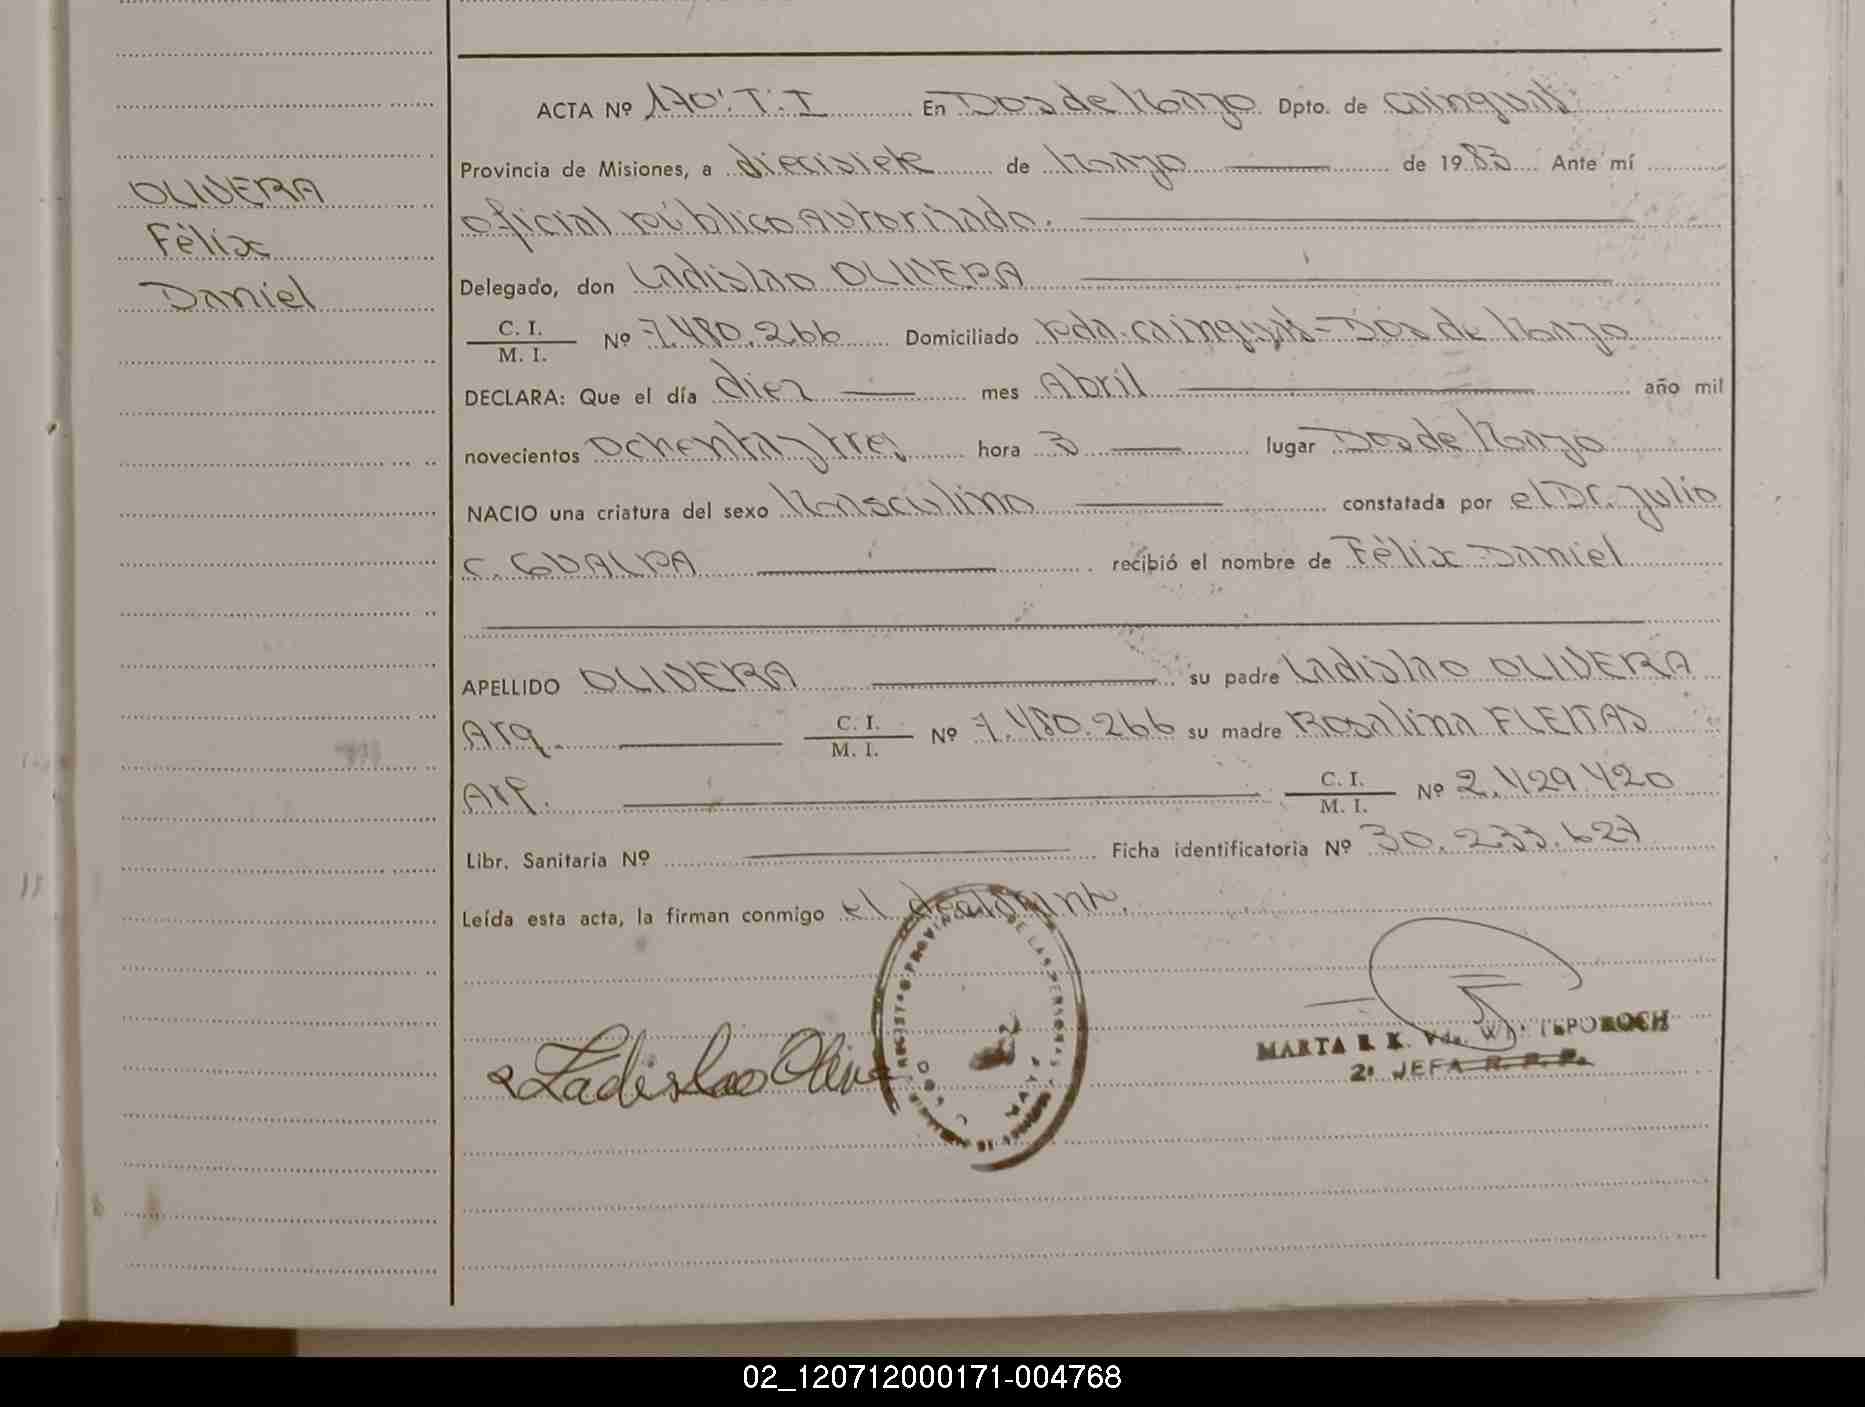 OLIVERA
Félix
Daniel
ACTA Nº 170'. T. I En Dos de Mayo Dpto. de Cainguás
Provincia de Misiones, a diecisiete de Mayo de 1983 Ante mí
oficial público autorizado.
Delegado, don Ladislao OLIVERA
C. I.
M. I. Nº 7.480.266 Domiciliado Pcia. Cainguás - Dos de Mayo
DECLARA: Que el día diez mes Abril año mil
novecientos ochenta y tres hora 3 lugar Dos de Mayo
NACIO una criatura del sexo Masculino constatada por el Dr. Julio
C. GUALPA recibió el nombre de Félix Daniel
APELLIDO OLIVERA su padre Ladislao OLIVERA
Arg. C. I. M. I. Nº 7.480.266 su madre Rosalina FLEITAS
Arg. C. I. M. I. Nº 2.429.420
Libr. Sanitaria Nº Ficha identificatoria Nº 30.233.627
Leída esta acta, la firman conmigo el declarante.
Ladislao Olivera
MARTA R. K. Vda.
2º JEFA R. P. P.
02_120712000171-004768